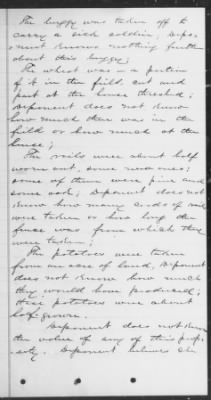 The buggy was taken off to
carry a sick soldier; Depo-
nent knows nothing further
about this buggy;
The wheat was in a portion
of it in the field, cut and
part at the house threshed;
Deponent does not know
how much there was in the
field or how much at the
house;
The rails were about half
worn out, some new ones;
some of them were pine and
some oak; Deponent does not
know how many cords of rails
were taken or how long the
fence was from which they
were taken;
The potatoes were taken
from one acre of land, Deponent
does not know how much
they would have produced;
these potatoes were about
half grown.
Deponent does not know
the value of any of this prop-
erty. Deponent believes the